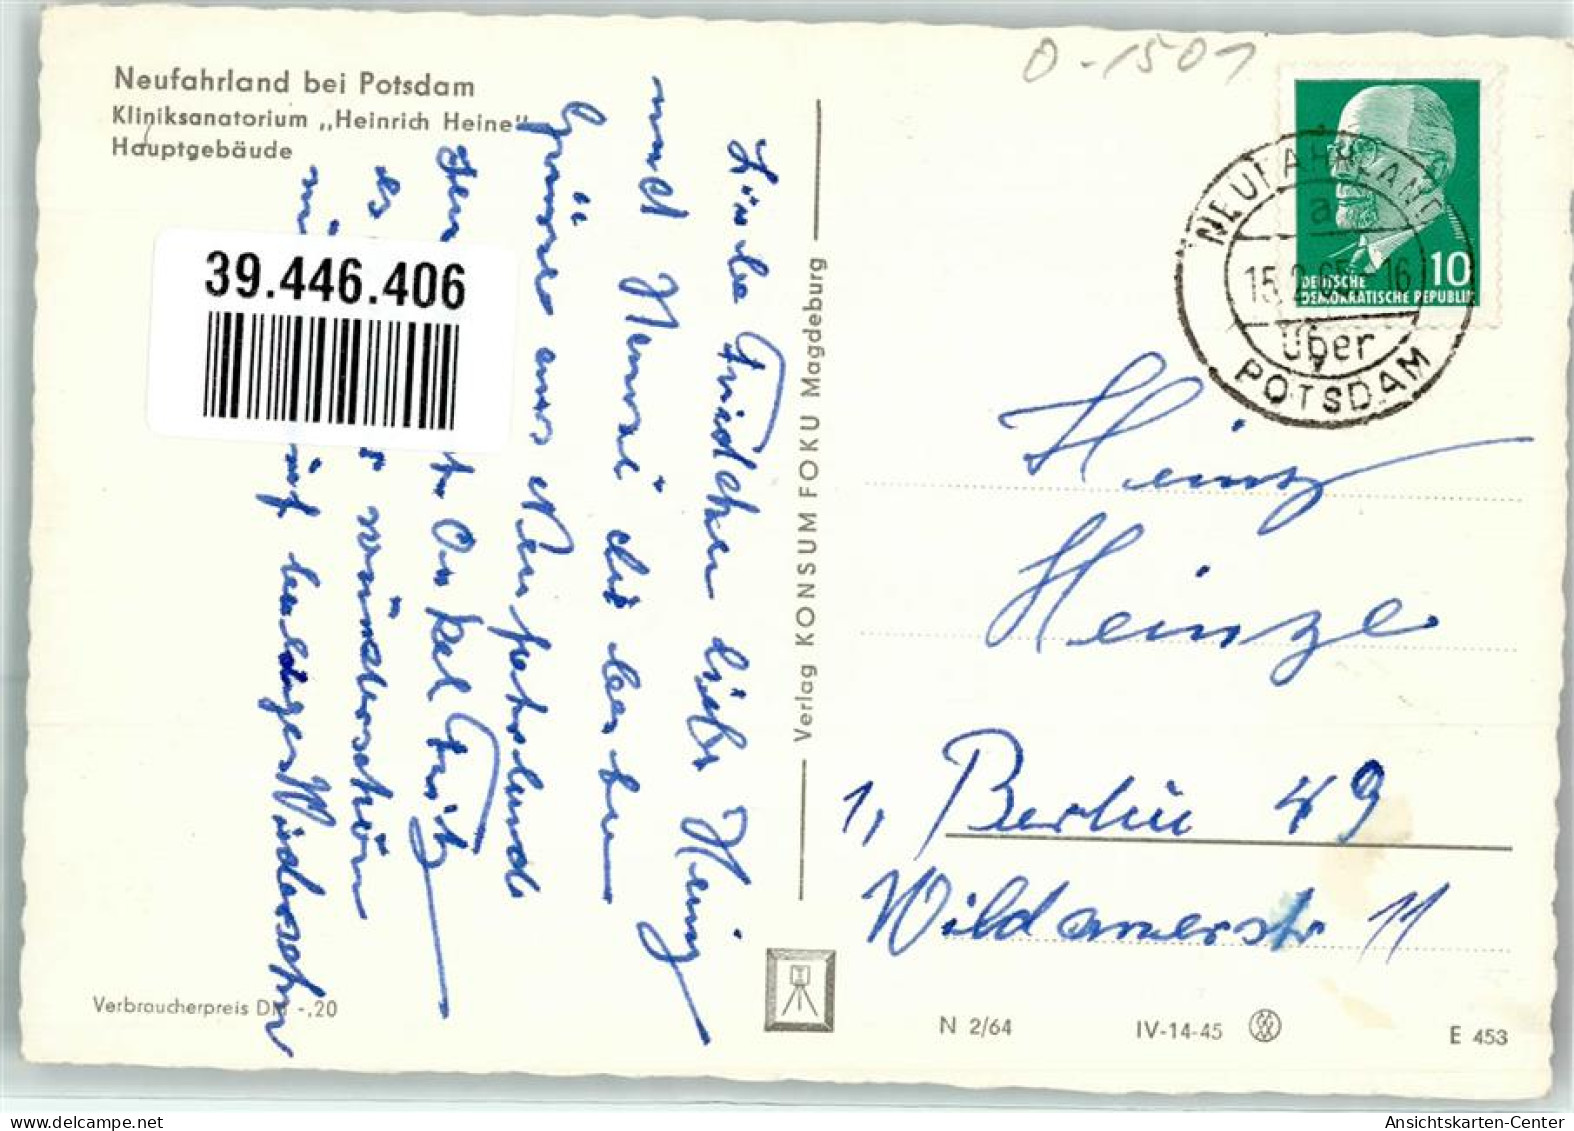 Neufahrland bei Potsdam
Kliniksanatorium „Heinrich Heine"
Hauptgebäude
O-1501
NEUFAHRLAND
a
15.2.65-16
über
POTSDAM
10
DEUTSCHE
DEMOKRATISCHE REPUBLIK
39.446.406
Friedchen lieber Heinz
und
Grüsse aus Neufahrland
Onkel Fritz
es wunderschön
Wiedersehn
Verlag KONSUM FOKU Magdeburg
Heinz
Heinze
1, Berlin 49
Wildauerstr 11
Verbraucherpreis DM -,20
N 2/64
IV-14-45
E 453
Ansichtskarten-Center